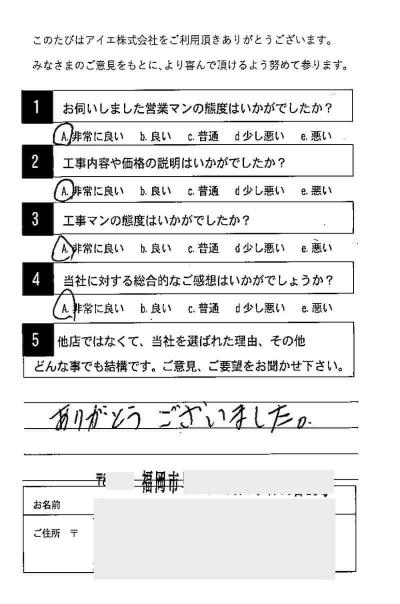 このたびはアイエ株式会社をご利用頂きありがとうございます。
みなさまのご意見をもとに、より喜んで頂けるよう努めて参ります。
1 お伺いしました営業マンの態度はいかがでしたか?
A.非常に良い b.良い c.普通 d少し悪い e.悪い
2 工事内容や価格の説明はいかがでしたか?
A.非常に良い b.良い c.普通 d少し悪い e.悪い
3 工事マンの態度はいかがでしたか?
A.非常に良い b.良い c.普通 d少し悪い e.悪い
4 当社に対する総合的なご感想はいかがでしょうか?
A.非常に良い b.良い c.普通 d少し悪い e.悪い
5 他店ではなくて、当社を選ばれた理由、その他
どんな事でも結構です。ご意見、ご要望をお聞かせ下さい。
ありがとうございました。
〒 福岡市
お名前
ご住所 〒